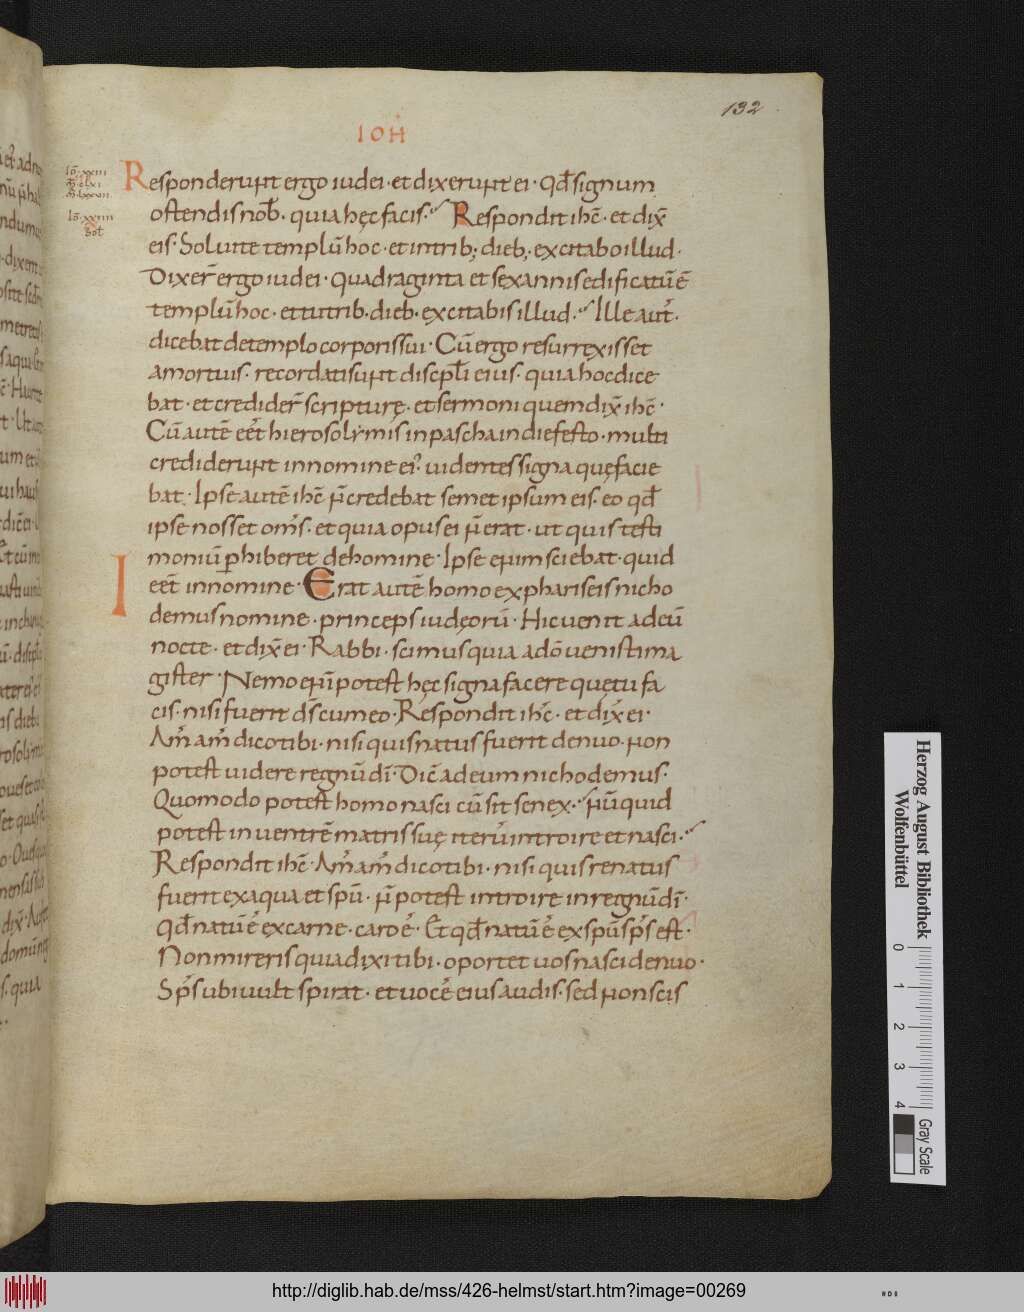 132
IOH
Ió·xxiii
Ió·xxiiii
Responderunt ergo iudei · et dixerunt ei · Qd̄ signum
ostendis nob̄ · quia hęc facis · Respondit ihc̄ · et dix̄
eis · Soluite templū hoc · et intrib; dieb; excitabo illud ·
Dixer̄ ergo iudei · quadraginta et sex annis edificatū ē
templū hoc · et tu trib · dieb · excitabis illud · Ille aut̄ ·
dicebat de templo corporis sui · Cū ergo resurrexisset
a mortuis · recordati sunt discpl̄i eius · quia hoc dice
bat · et credider̄ scripturę · et sermoni quem dix̄ ihc̄ ·
Cū autē eēt hierosolymis in pascha in die festo · multi
crediderunt in nomine ei᾿ · uidentes signa quę facie
bat · Ipse autē ihc̄ n̄ credebat semet ipsum eis · eo qd̄
ipse nosset om̄s · et quia opus ei n̄ erat · ut quis testi
moniū phiberet de homine · Ipse enim sciebat · quid
eēt in nomine · Erat autē homo ex phariseis nicho
demus nomine · princeps iudęorū · Hic uenit ad eū
nocte · et dix̄ ei · Rabbi · scimus quia a dō uenisti ma
gister · Nemo eni̅ potest hęc signa facere quę tu fa
cis · nisi fuerit ds̄ cum eo · Respondit ihc̄ · et dix̄ ei ·
Am̄ am̄ dico tibi · nisi quis natus fuerit denuo · non
potest uidere regnū dī · Dic̄ ad eum nichodemus ·
Quomodo potest homo nasci cū sit senex · nū quid
potest in uentrē matris suę iterū introire et nasci ·
Respondit ihc̄ · Am̄ am̄ dico tibi · nisi quis renatus
fuerit ex aqua et spū · n̄ potest introire in regnū dī ·
Qd̄ natū ē ex carne · caro ē · Et qd̄ natū ē ex spū sps̄ est ·
Non mireris quia dixi tibi · oportet uos nasci denuo ·
Sps̄ ubi uult spirat · et uocē eius audis · sed non scis
Herzog August Bibliothek
Wolfenbüttel
0 1 2 3 4
Gray Scale
http://diglib.hab.de/mss/426-helmst/start.htm?image=00269